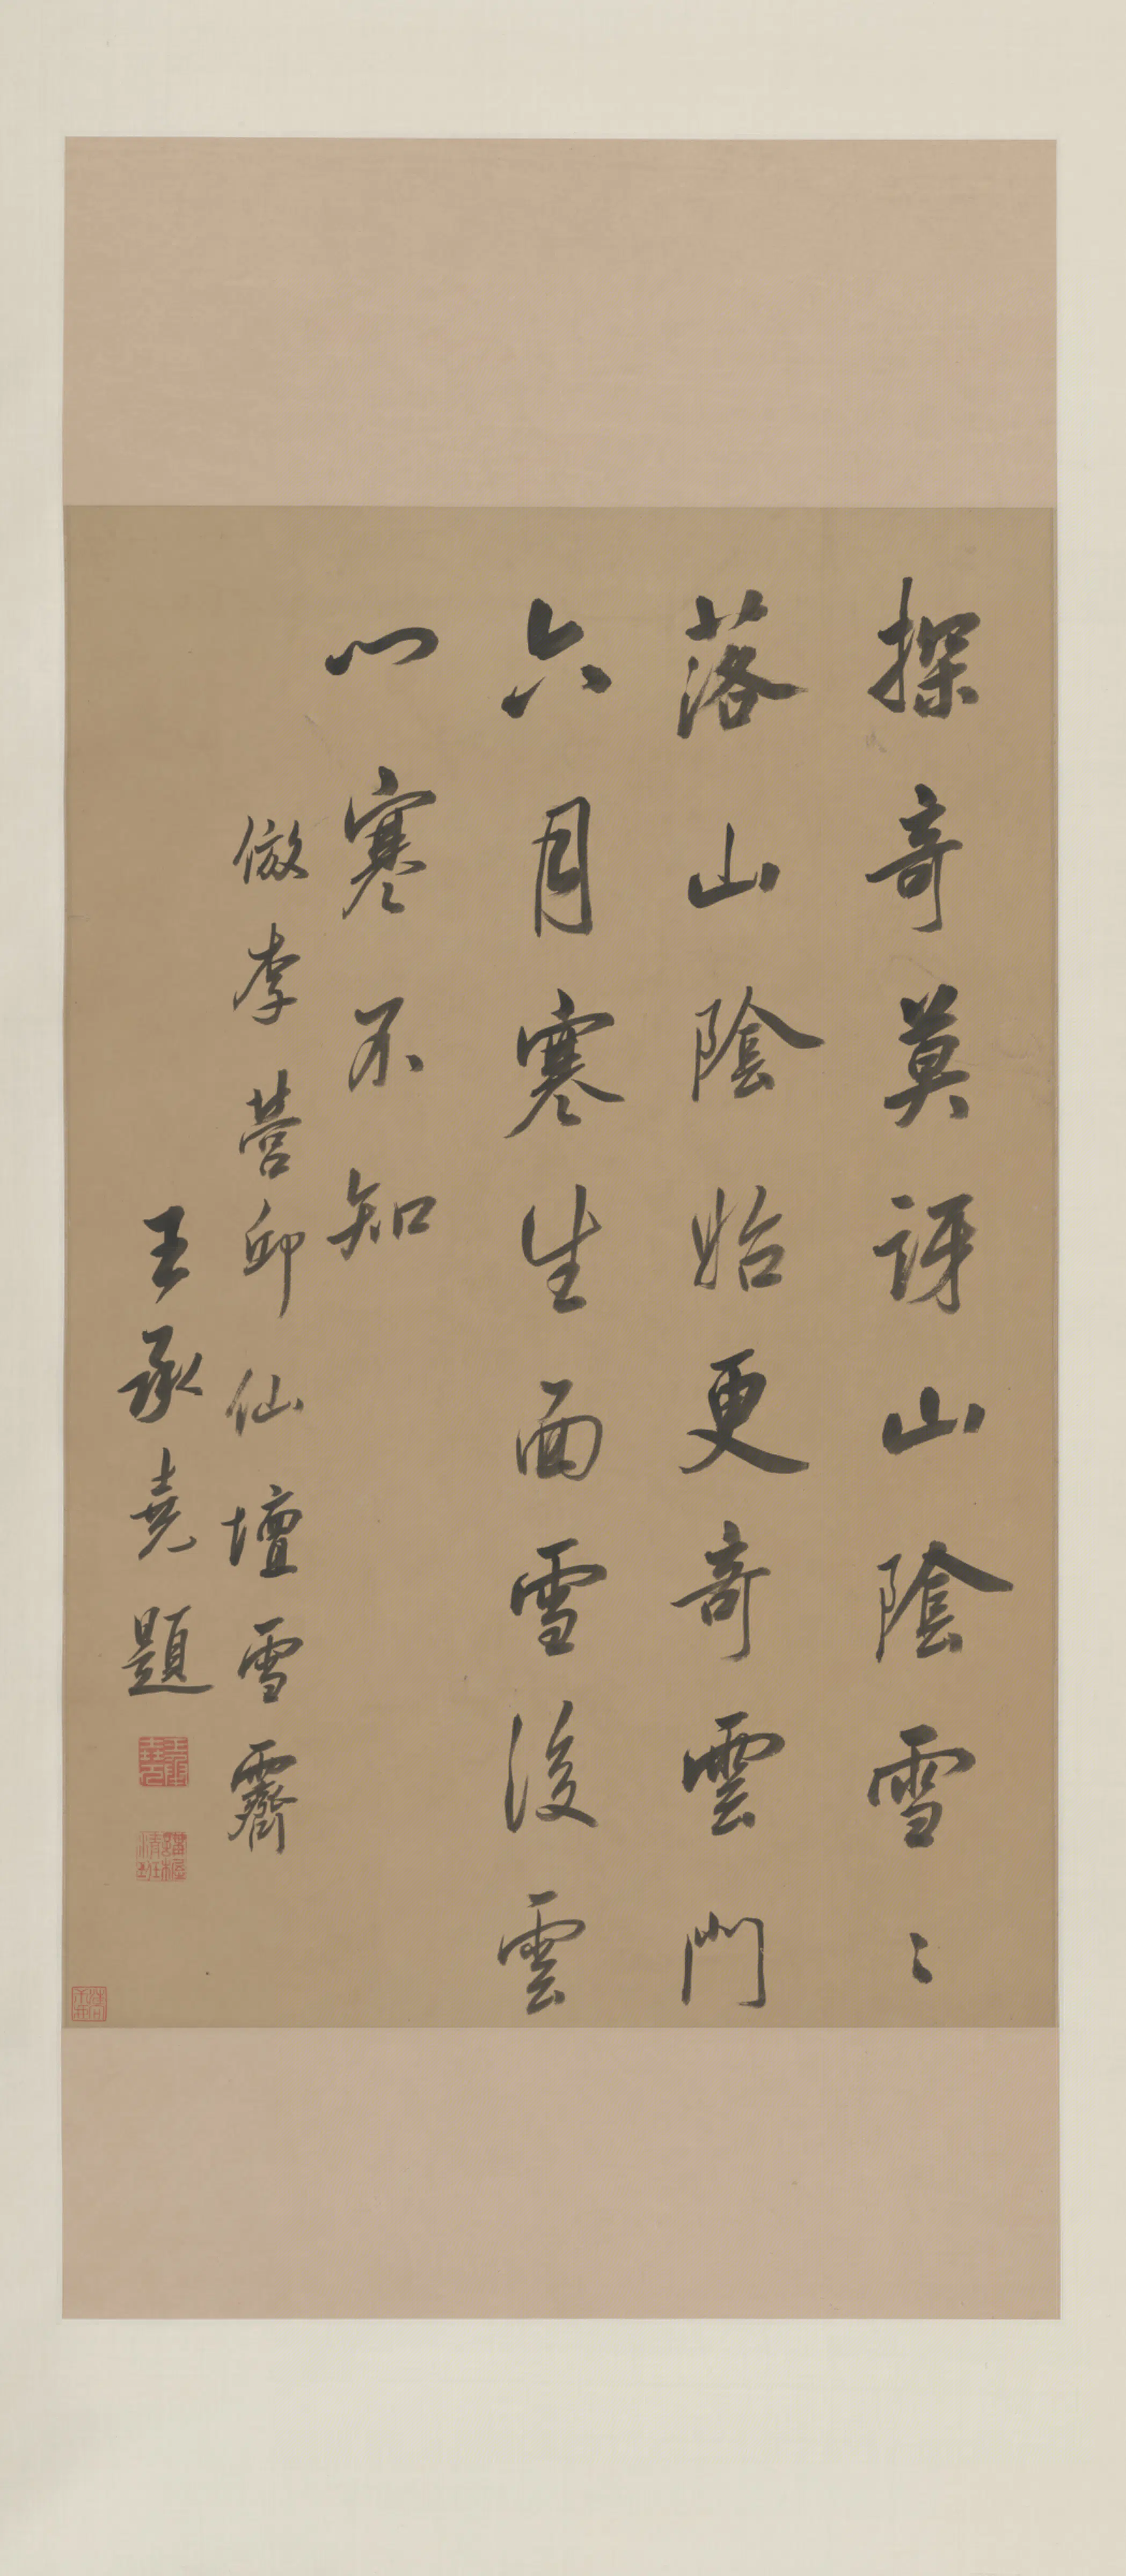 探奇莫訝山陰雪〻
落山陰始更奇雲門
六月寒生面雪後雲
門寒不知
倣李營邱仙壇雪霽
王承堯題